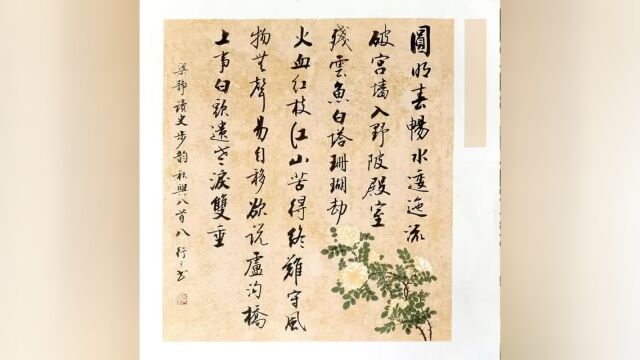 圓明春暢水逶迤流
破宮墻入野陂殿室
殘雲魚白塔珊瑚劫
火血红枝江山苦得終難守風
物無聲易自移欲说盧沟橋
上事白頭遺老淚雙垂
讀史步韵秋興八首八 行之书